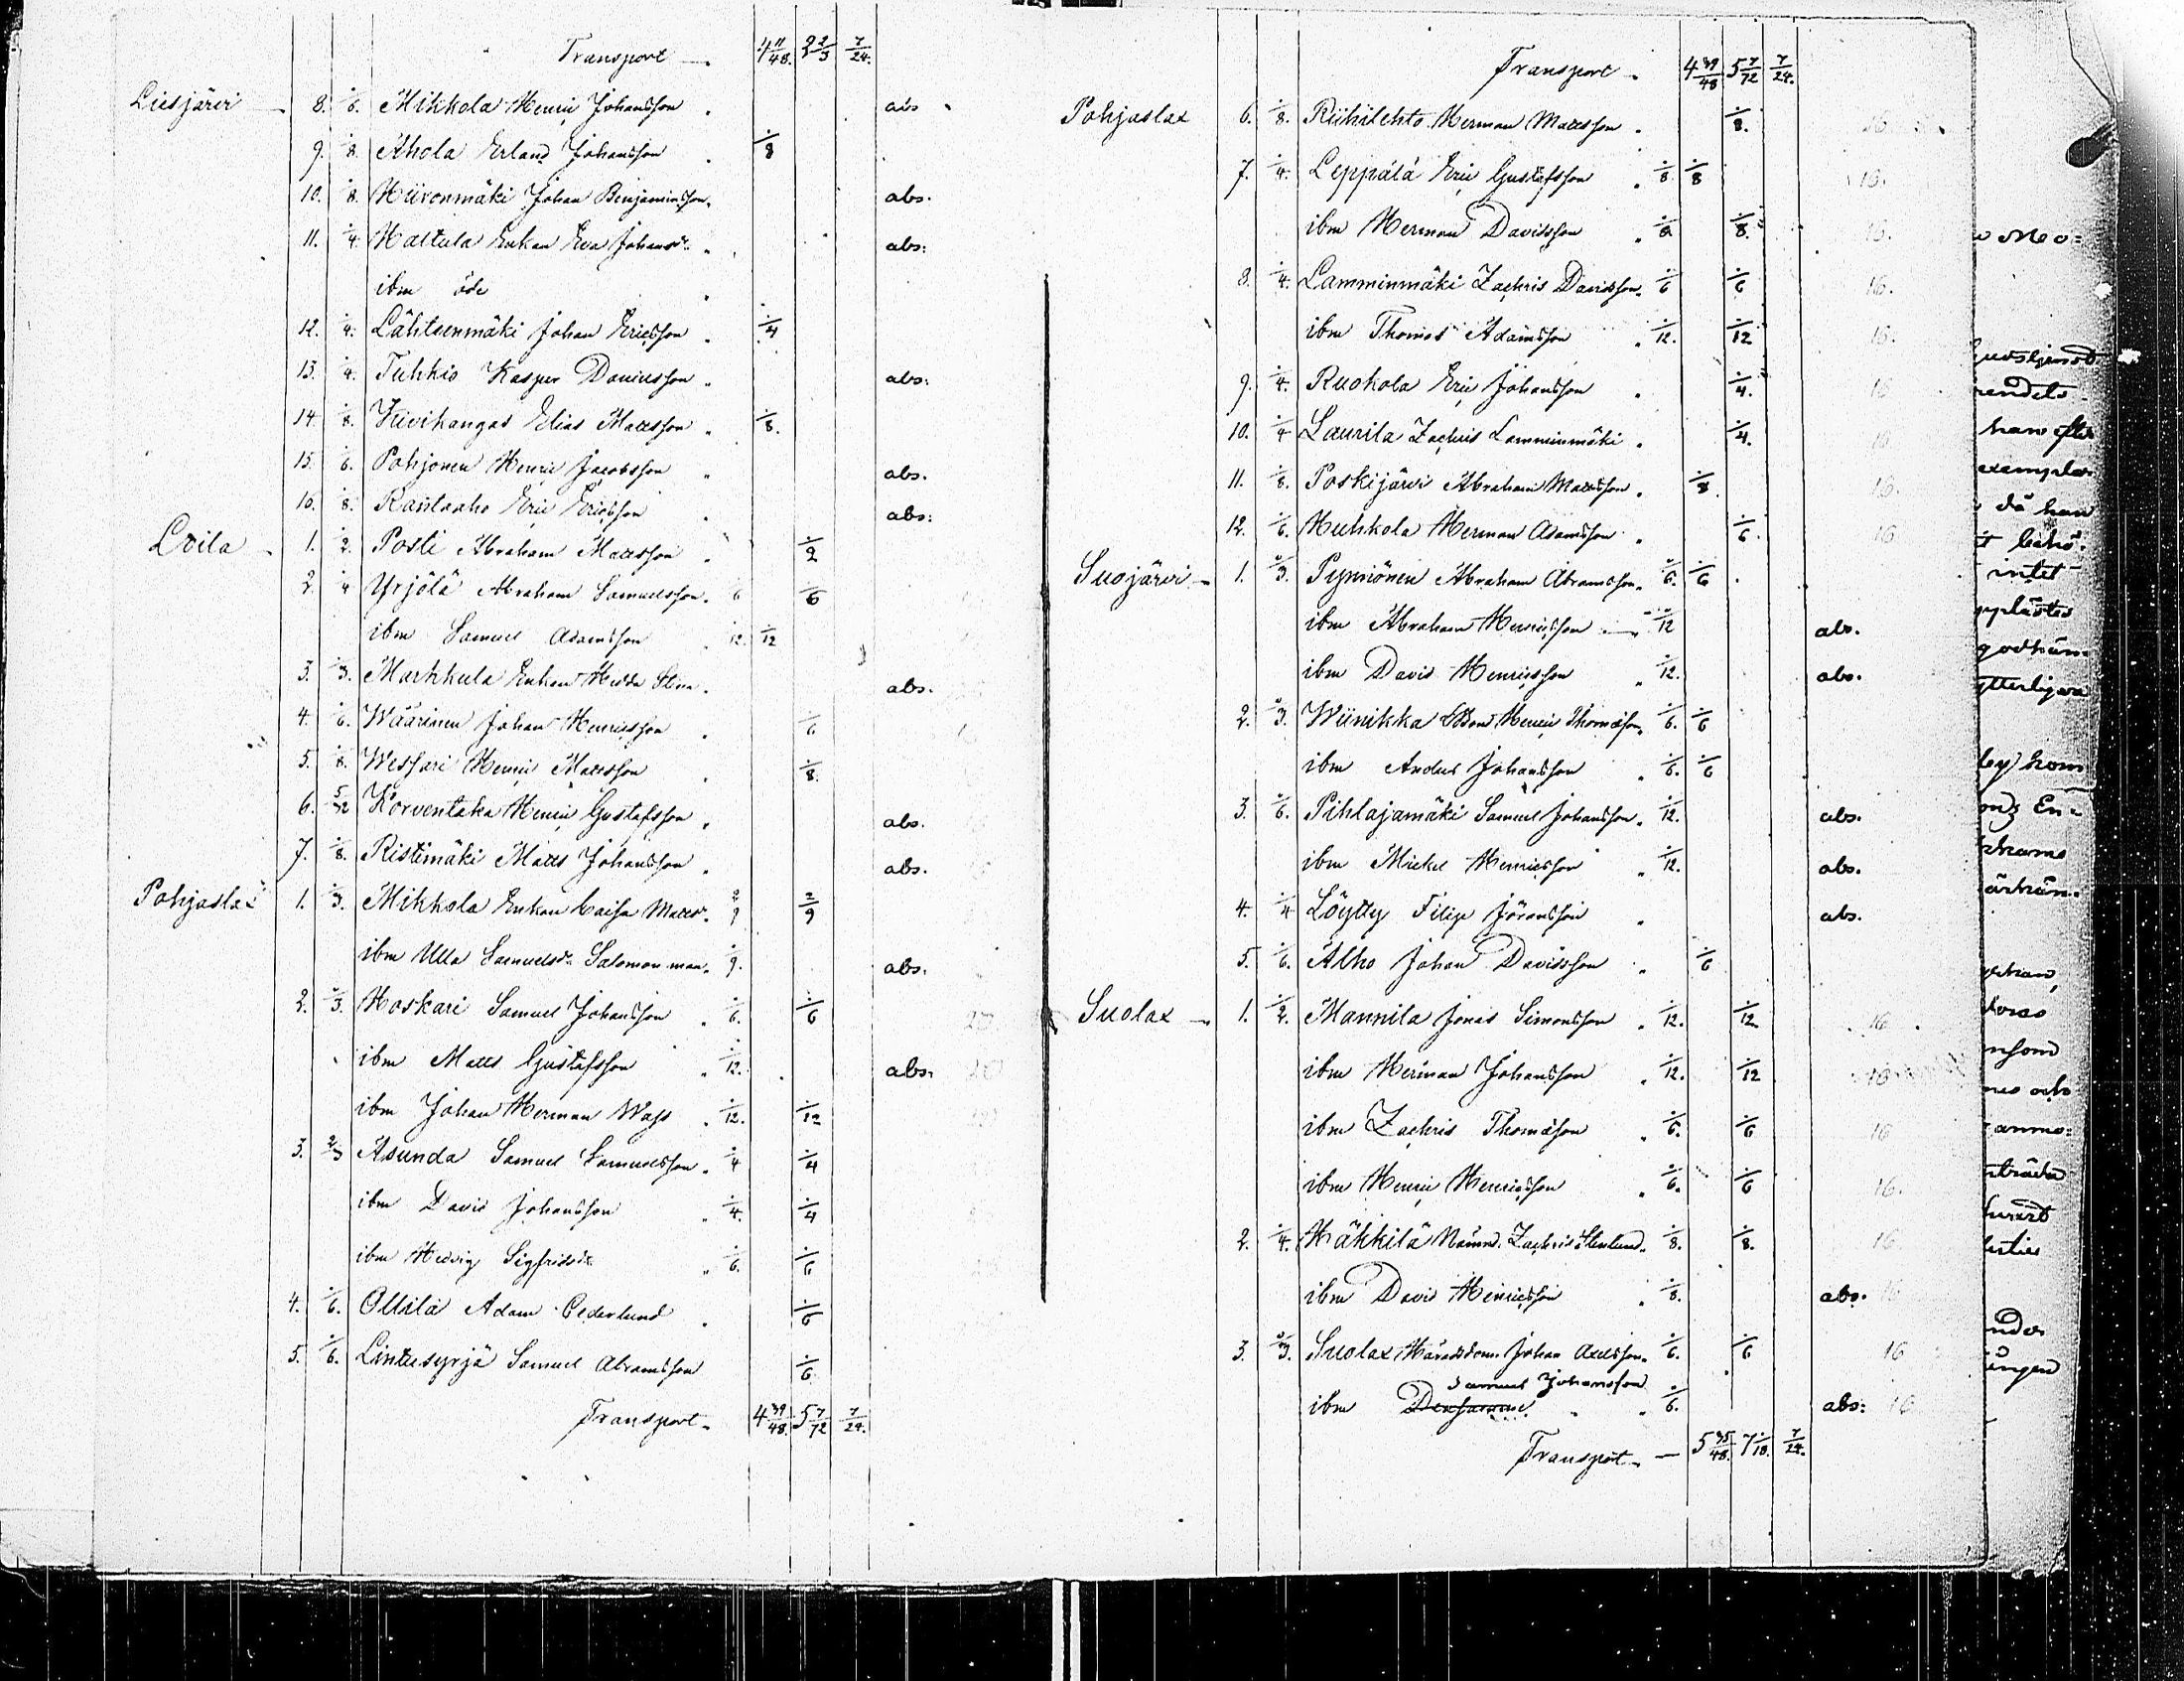 Transport 4 11/48. 2 2/3 7/24.
Liesjärvi 8. 1/6. Mikkola Henric Johansson abs
9. 1/8. Ahola Erland Johansson 1/8
10. 1/8. Hiironmäki Johan Benjaminsson abs.
11. 1/4. Haltula Enkan Eva Johansdr abs:
ibm öde
12. 1/4. Lähteenmäki Johan Ericsson 1/4
13. 1/4. Tuhkio Kasper Danielsson abs:
14. 1/8. Kivihangas Elias Mattsson 1/8.
15. 1/6. Pohjonen Henric Jacobsson abs.
10. 1/8. Rantaaho Eric Ericsson abs:
Loila 1. 1/2. Posti Abraham Mattsson 1/2
2. 1/4 Yrjölä Abraham Samuelsson 1/6 1/6
ibm Samuel Adamsson 1/12. 1/12
3. 1/3. Markkula Enkan Hedda Stina abs.
4. 1/6. Wäärinen Johan Henricsson 1/6
5. 1/8. Wessari Henric Mattsson 1/8.
6. 5/12 Korventaka Henric Gustafsson abs.
7. 1/8. Ristimäki Matts Johansson abs.
Pohjaslax 1. 1/3. Mikkola Enkan Caisa Mattsdr 2/9 2/9
ibm Ulla Samuelsdr Salomon man 1/9. abs.
2. 1/3. Hoskari Samuel Johansson 1/6. 1/6
ibm Matts Gustafsson 1/12. abs.
ibm Johan Herman Wass 1/12. 1/12
3. 2/3 Asunda Samuel Samuelsson 1/4 1/4
ibm David Johansson 1/4. 1/4
ibm Hedvig Sigfridsdr 1/6. 1/6
4. 1/6. Ollila Adam Cederlund 1/6
5. 1/6. Lintusyrjä Samuel Abramsson 1/6
Transport 4 39/48. 5 7/72 7/24.
Transport 4 39/48 5 7/72 7/24.
Pohjaslax 6. 1/8. Riihilehto Herman Mattsson 1/8. 16
7. 1/4. Leppälä Eric Gustafsson 1/8 1/8 16.
ibm Herman Davidsson 1/8 1/8. 16.
8. 1/4. Lamminmäki Zachris Davidsson 1/6 1/6 16.
ibm Thomas Adamsson 1/12. 1/12 16.
9. 1/4. Ruokola Eric Johansson 1/4. 16
10. 1/4 Laurila Zachris Lamminmäki 1/4. 16
11. 1/8. Poskijärvi Abraham Mattsson 1/8. 16.
12. 1/6. Huhkola Herman Adamsson 1/6. 16
Suojärvi 1. 2/3. Pynnönen Abraham Abramsson 1/6. 1/6
ibm Abraham Henricsson 1/12 abs.
ibm David Henricsson 1/12. abs.
2. 2/3. Wiinikka Henric Thomasson 1/6. 1/6
ibm Anders Johansson 1/6. 1/6
3. 1/6. Pihlajamäki Samuel Johansson 1/12. abs.
ibm Mickel Henricsson 1/12. abs.
4. 1/4 Löytty Filip Jöransson abs.
5. 1/6. Alho Johan Davidsson 1/6
Suolax 1. 1/2. Mannila Jonas Simonsson 1/12. 1/12. 16
ibm Herman Johansson 1/12. 1/12 16
ibm Zachris Thomasson 1/6. 1/6 16
ibm Henric Henricsson 1/6. 1/6 16.
2. 1/4. Häkkilä Nämnd. Zachris Stenlund 1/8. 1/8. 16
ibm David Henricsson 1/8. abs. 16
3. 2/3. Suolax Häradsdom. Johan Axelsson 1/6. 1/6 16
Samuel Johansson
ibm Densamme 1/6. abs: 16
Transport 5 35/48. 7 1/18. 7/24.